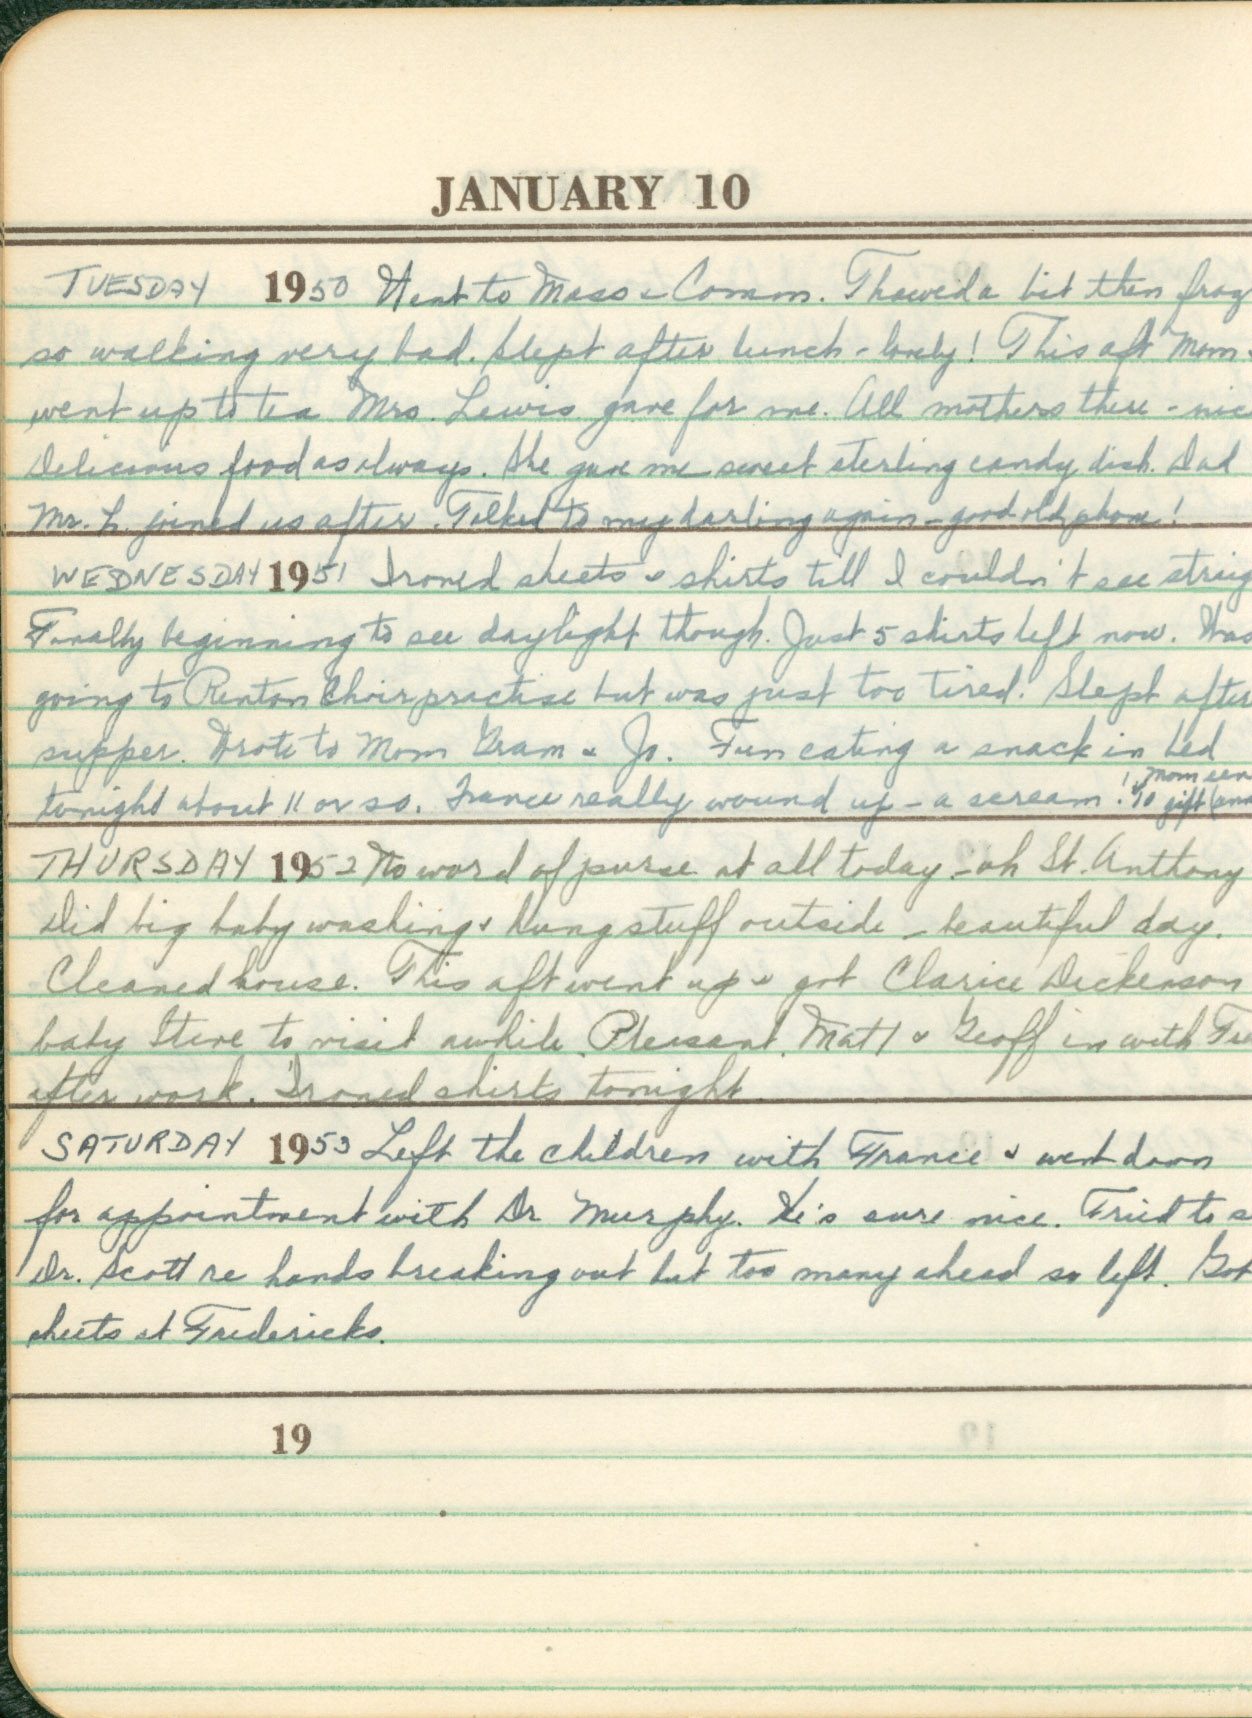 JANUARY 10
TUESDAY 1950 Went to Mass & Comm. Thawed a bit then froz
so walking very bad. Slept after lunch - lovely! This aft Mom &
went up to tea Mrs. Lewis gave for me. All mothers there - nic
Delicious food as always. She gave me sweet sterling candy dish. Dad
Mr. L. joined us after. Talked to my darling again - good old phone!
WEDNESDAY 1951 Ironed sheets & shirts till I couldn't see straig
Finally beginning to see daylight though. Just 5 shirts left now. Was
going to Renton Choir practise but was just too tired. Slept after
supper. Wrote to Mom Gram & Jo. Fun eating a snack in bed
tonight about 11 or so. France really wound up - a scream! Mom sen
$10 gift (and
THURSDAY 1952 No word of purse at all today - oh St. Anthony
Did big baby washing & hung stuff outside - beautiful day.
Cleaned house. This aft went up & got Clarice Dickenson
baby Steve to visit awhile. Pleasant. Matt & Geoff in with Fr
after work. Ironed shirts tonight
SATURDAY 1953 Left the children with France & went down
for appointment with Dr Murphy. He's sure nice. Tried to s
Dr. Scott re hands breaking out but too many ahead so left. Got
sheets at Fredericks.
19